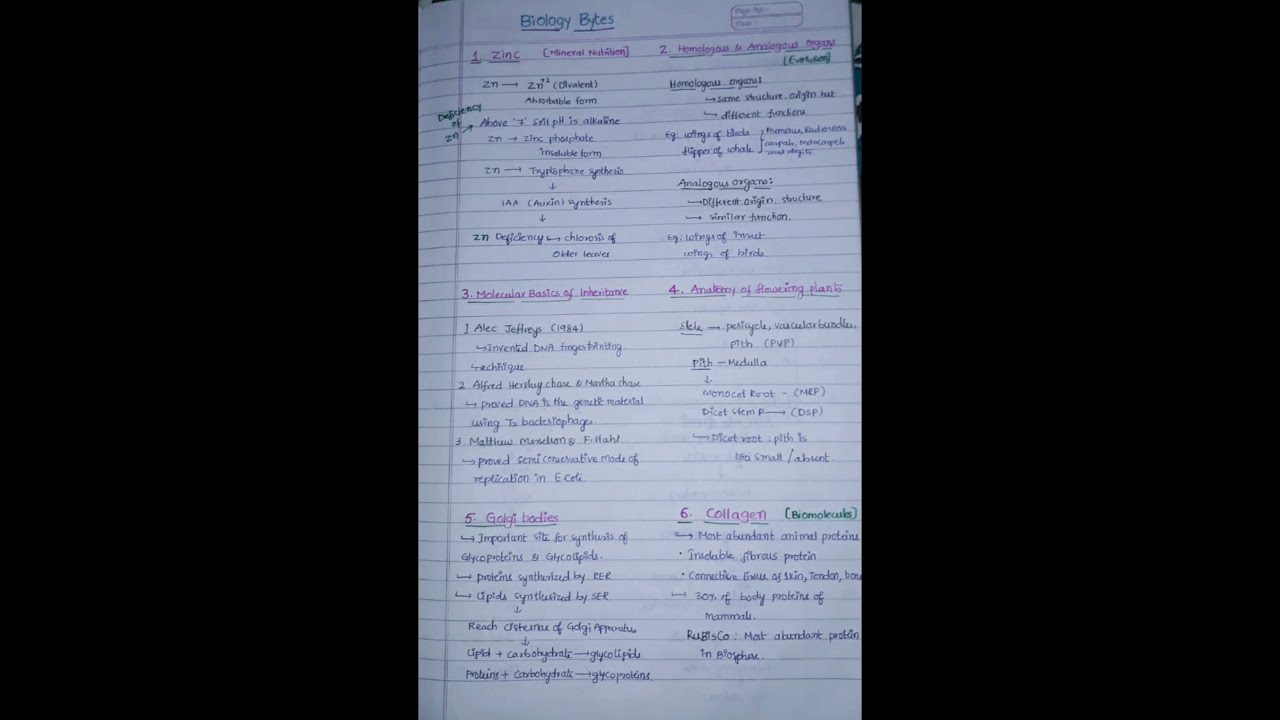 Biology Bytes
Page No:
Date:
1. Zinc [Mineral Nutrition]
Zn → Zn+2 (Divalent)
Absorbable form
Deficiency
of
Zn
Above '7' Soil pH is alkaline
Zn → Zinc phosphate
insoluble form
Zn → Tryptophane synthesis
↓
IAA (Auxin) synthesis
↓
Zn Deficiency ↳ chlorosis of
Older leaves
2. Homologous & Analogous organs
[Evolution]
Homologous organs:
↳ same structure, origin but
↳ different functions
Eg: wings of birds } Humerus, Radius, ulna
flipper of whale carpals, Metacarpels
and digits.
Analogous organs:
↳ Different origin, structure
↳ similar function.
Eg: wings of insect
wings of birds.
3. Molecular Basics of Inheritance
1 Alec Jeffreys (1984)
↳ Invented DNA fingerprinting
technique.
2. Alfred Hershey chase & Martha chase
↳ proved DNA is the genetic material
using T2 bacteriophage.
3. Matthew Menelson & F. Stahl
↳ proved semi conservative mode of
replication in E.Coli.
4. Anatomy of flowering plants
Stele → pericycle, vascular bundles,
Pith (PVP)
Pith – Medulla
↓
Monocot Root - (MRP)
Dicot stem P → (DSP)
↳ Dicot root : pith is
too small / absent.
5. Golgi bodies
↳ Important site for synthesis of
Glycoproteins & Glycolipids.
↳ proteins synthesized by RER
↳ Lipids synthesized by SER
↓
Reach cisternae of Golgi Apparatus
↓
Lipid + carbohydrate → glycolipids
Proteins + carbohydrate → glycoproteins.
6. Collagen [Biomolecules]
↳ Most abundant animal proteins
• Insoluble fibrous protein
• Connective tissue of skin, Tendon, bone
↳ 30% of body proteins of
Mammals.
RuBisCo : Most abundant protein
in Biosphere.